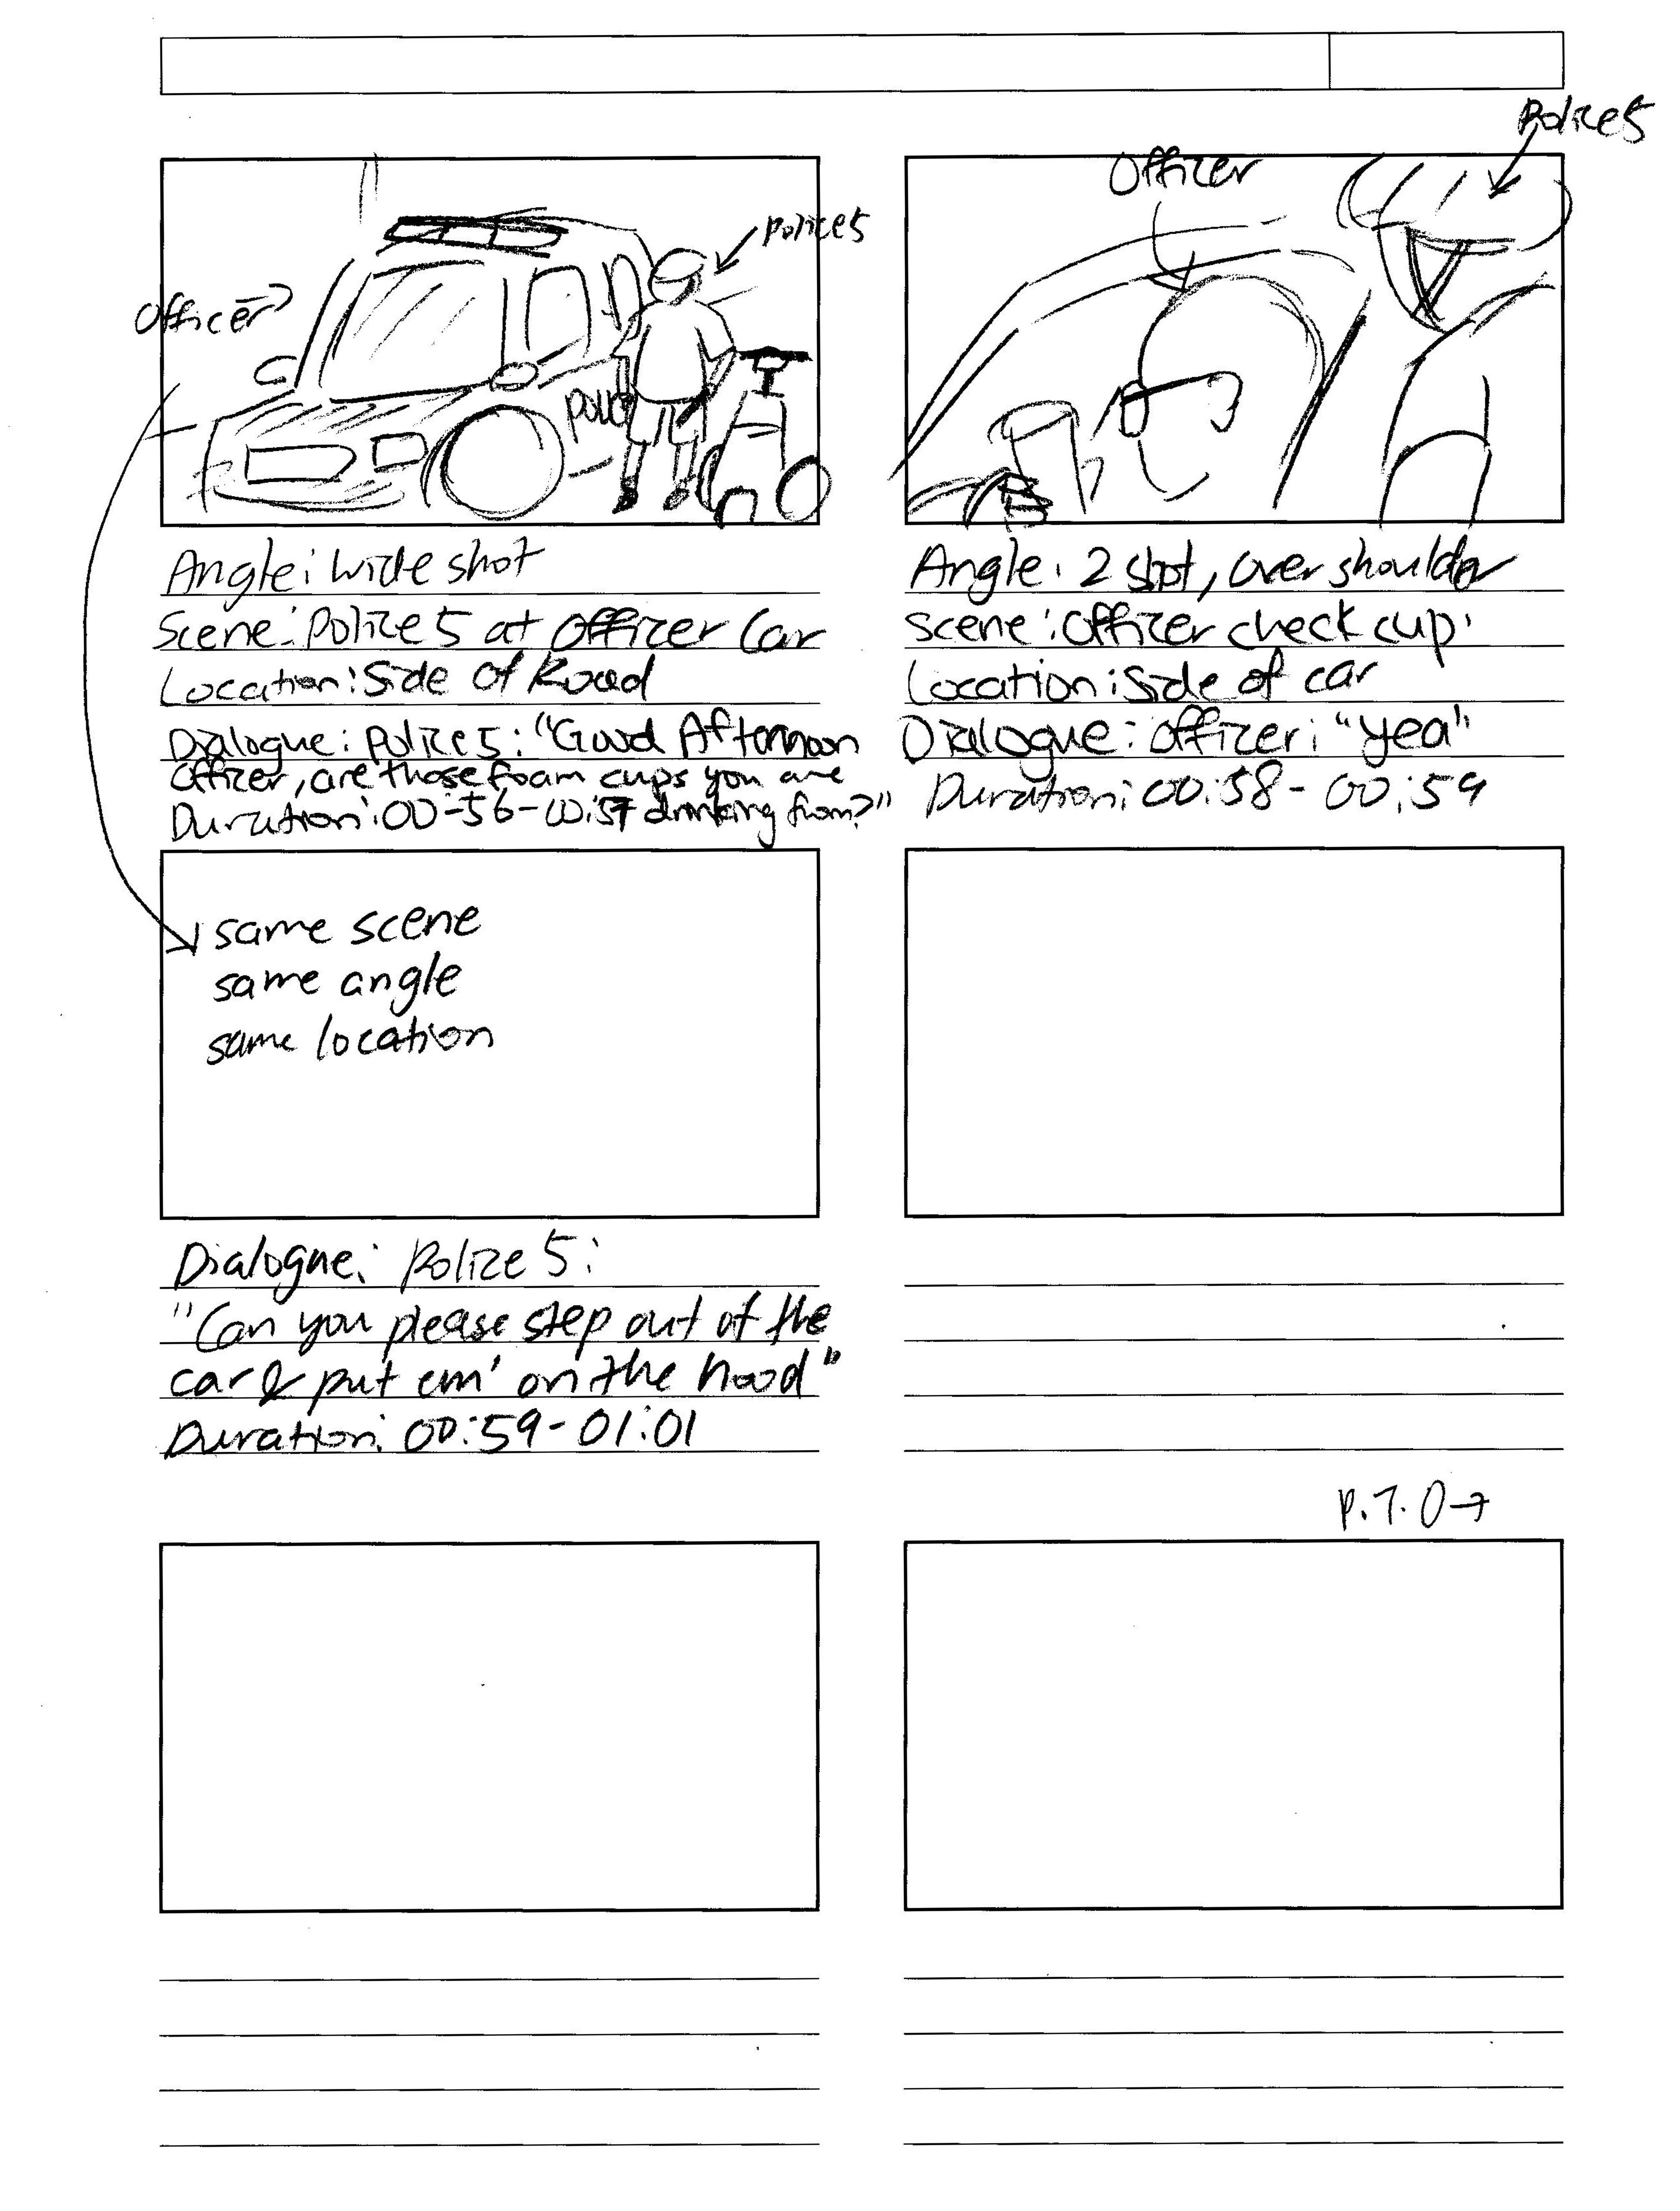 Police5
Officer
Police5
Officer
Police
Angle: wide shot
Scene: Police 5 at Officer Car
Location: Side of Road
Dialogue: Police5: "Good Afternoon
Officer, are those foam cups you are
drinking from?"
Duration: 00-56-00:57
Angle: 2 shot, over shoulder
Scene: Officer check cup.
Location: Side of car
Dialogue: Officer: "yea"
Duration: 00:58-00:59
same scene
same angle
same location
Dialogue: Police 5:
"Can you please step out of the
car & put em' on the hood"
Duration: 00:59-01:01
P.T.O→